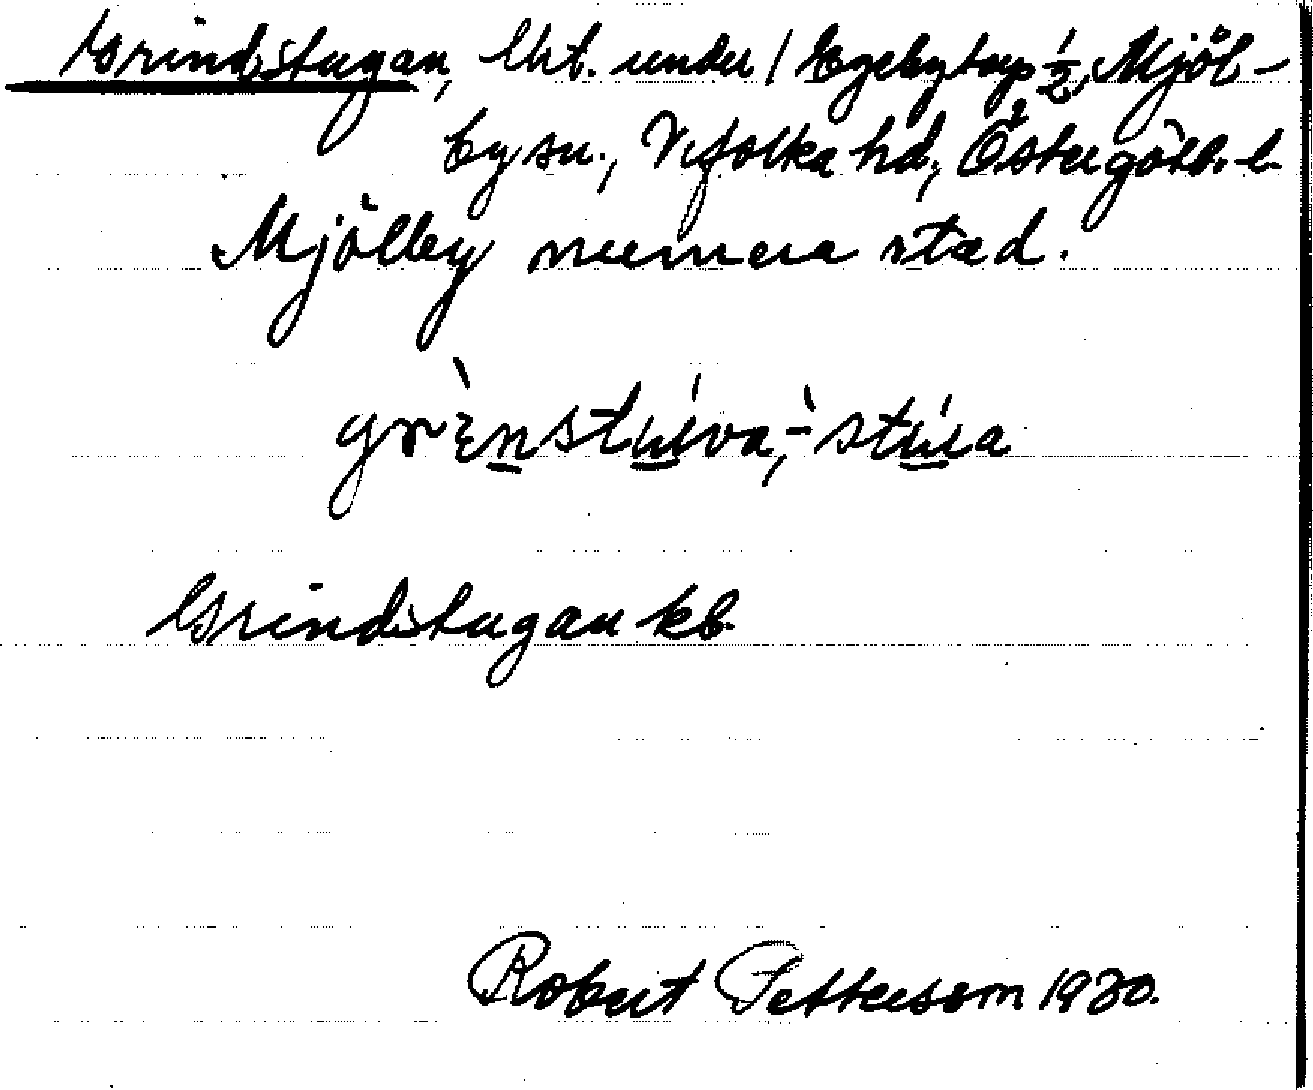 Grindstugan, lht. under / Egebytorp 1/2, Mjöl-
by sn., Vifolka hd, Östergötl. l.
Mjölby numera stad.
grɛ̀nstúva, -̀stúa
Grindstugan kb
Robert Pettersson 1930.